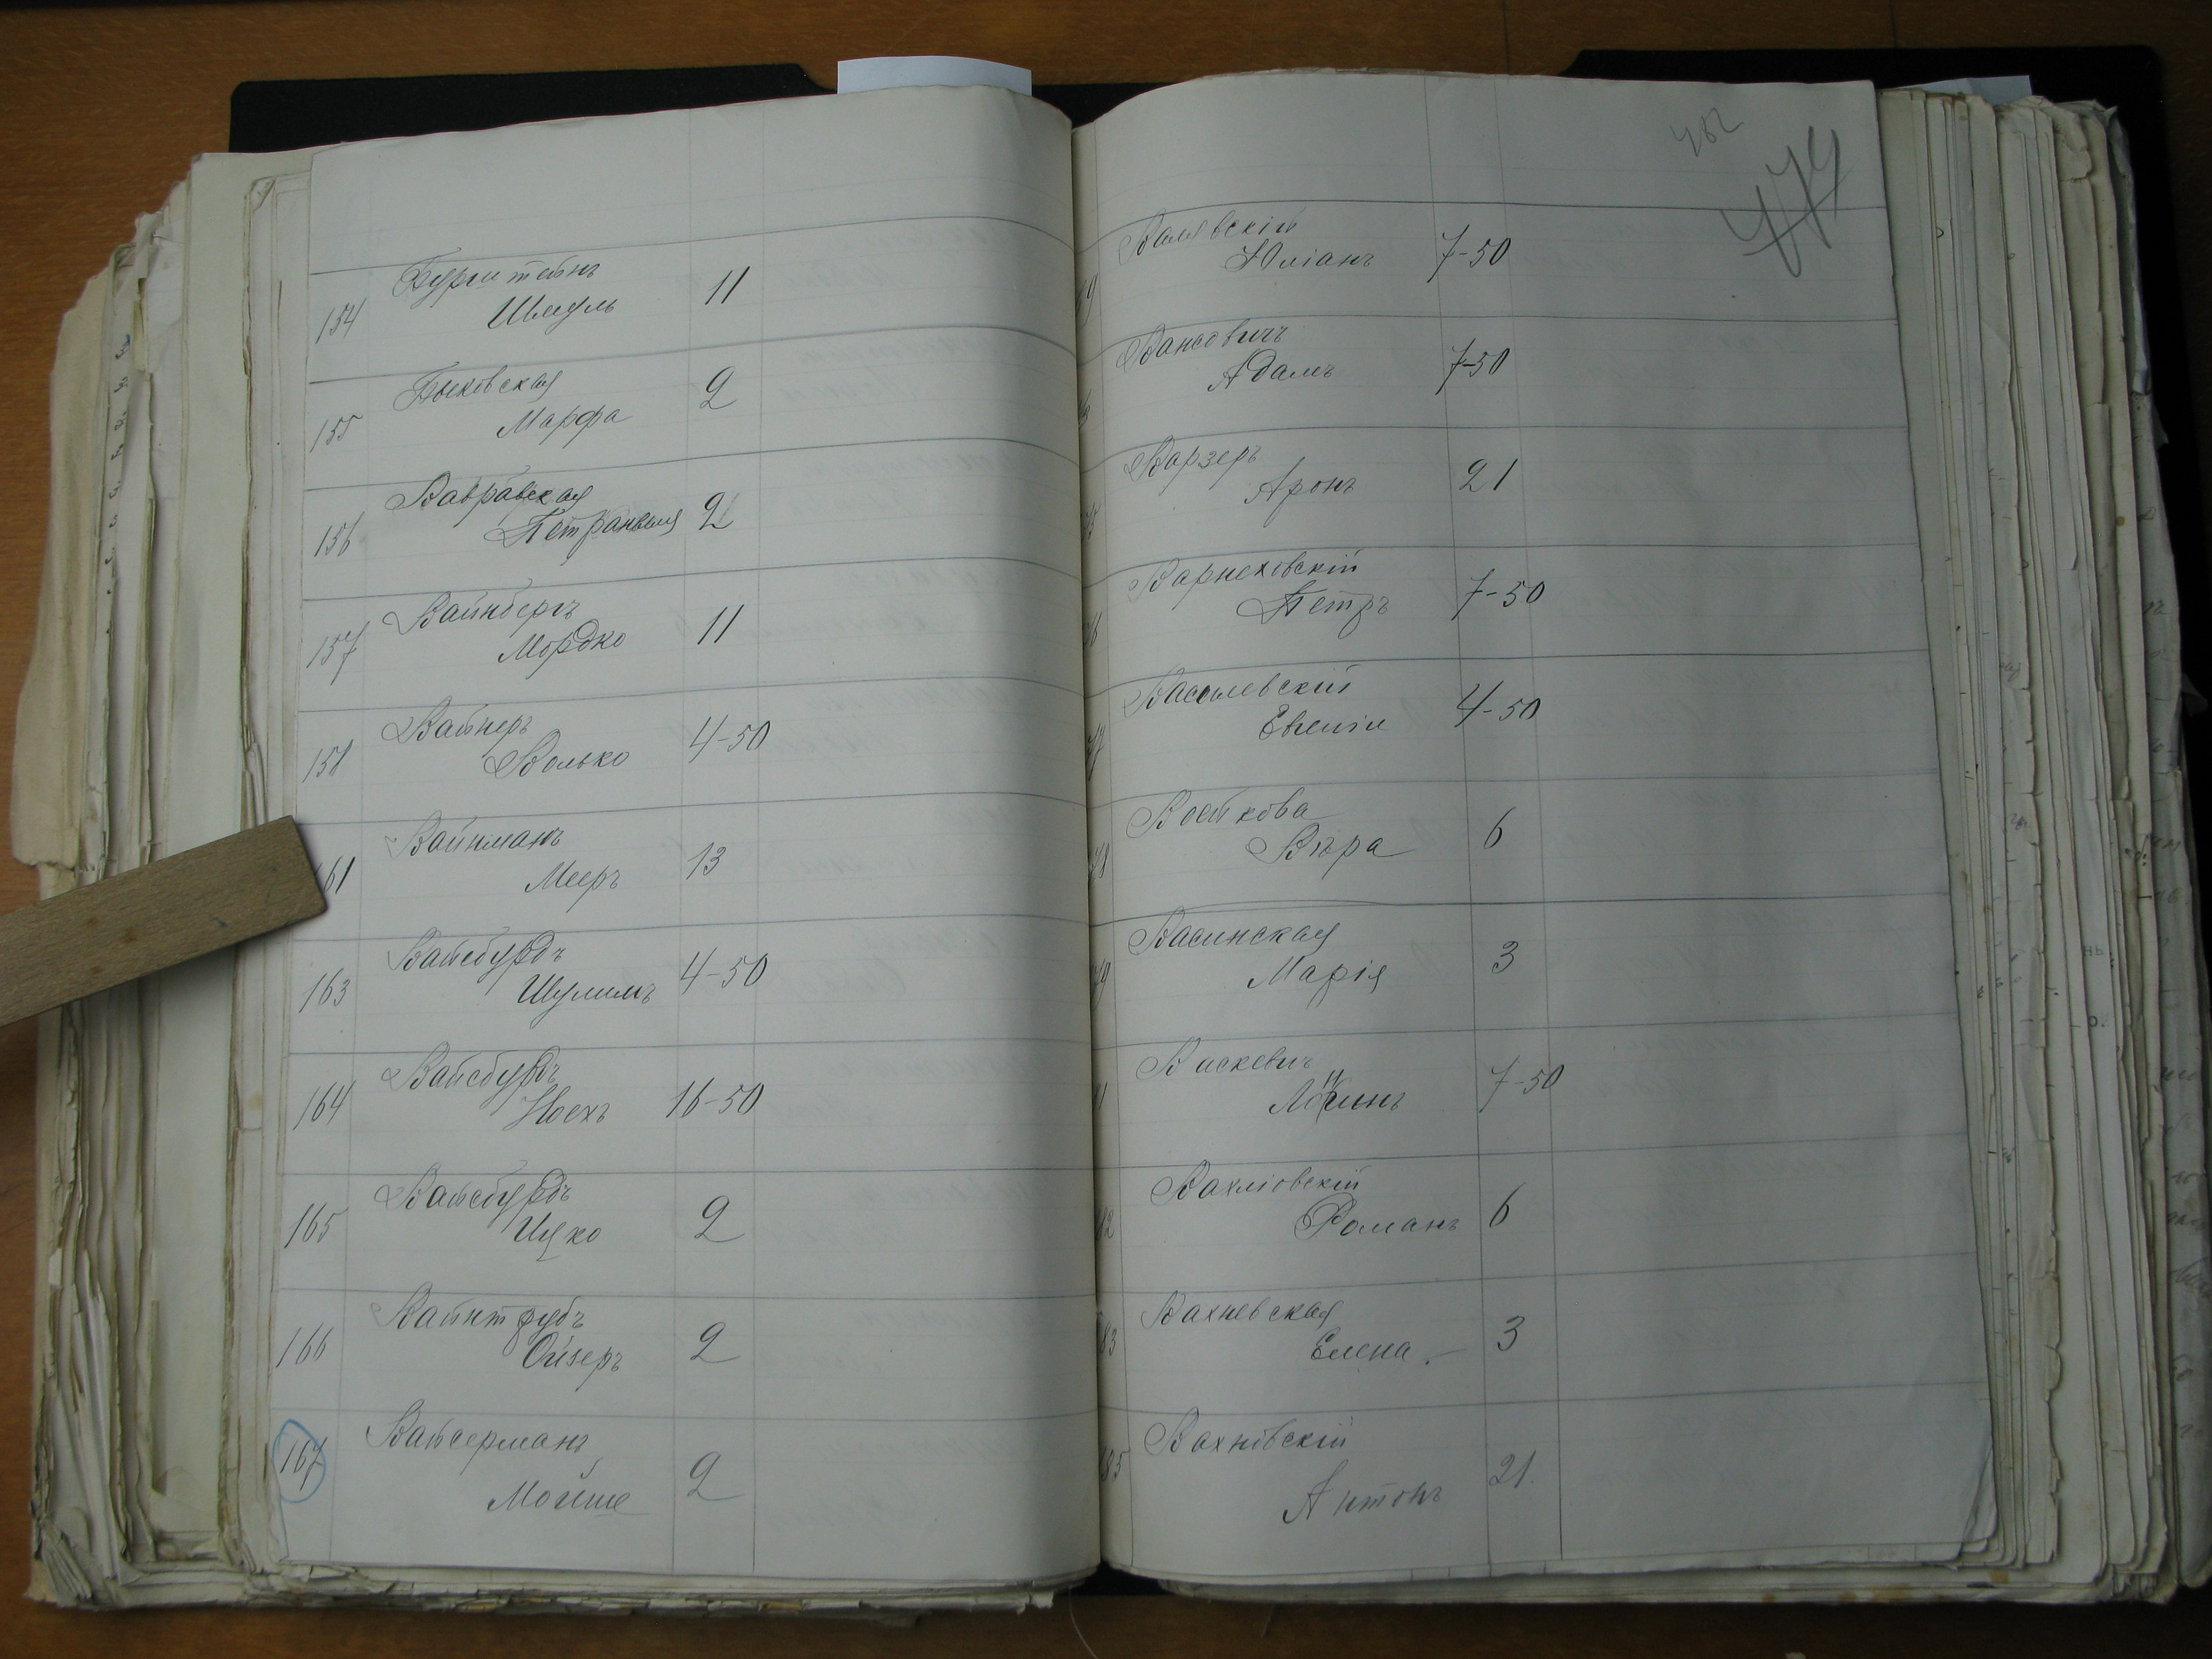 154 Бурштейнъ
Шмуль 11
155 Быковская
Марфа 2
156 Вавравская
Петранеля 2
157 Вайнбергъ
Мордко 11
158 Вайнеръ
Волько 4-50
161 Вайнманъ
Мееръ 13
163 Вайсбурдъ
Шулимъ 4-50
164 Вайсбурдъ
Ноехъ 16-50
165 Вайсбурдъ
Ицко 2
166 Вайнтрубъ
Ойзеръ 2
167 Вайсерманъ
Мойше 2
482
474
Валевскій
Юліанъ 7-50
Вансовичъ
Адамъ 7-50
Варзеръ
Аронъ 21
Варнеховскій
Петръ 7-50
Василевскій
Евгеній 4-50
Войткова
Вѣра 6
Васинская
Марія 3
Васкевичъ
7-50
Вахліовскій
Романъ 6
83 Вахневская
Елена 3
85 Вахновскій
Антонъ 21.